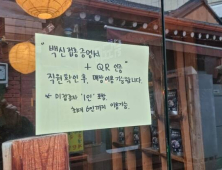 "백신접종증명서
+ QR 인증"
직원확인 후, 매장이용 가능합니다.
* 미접종자 "1인" 포함
최대 6인까지 이용가능.